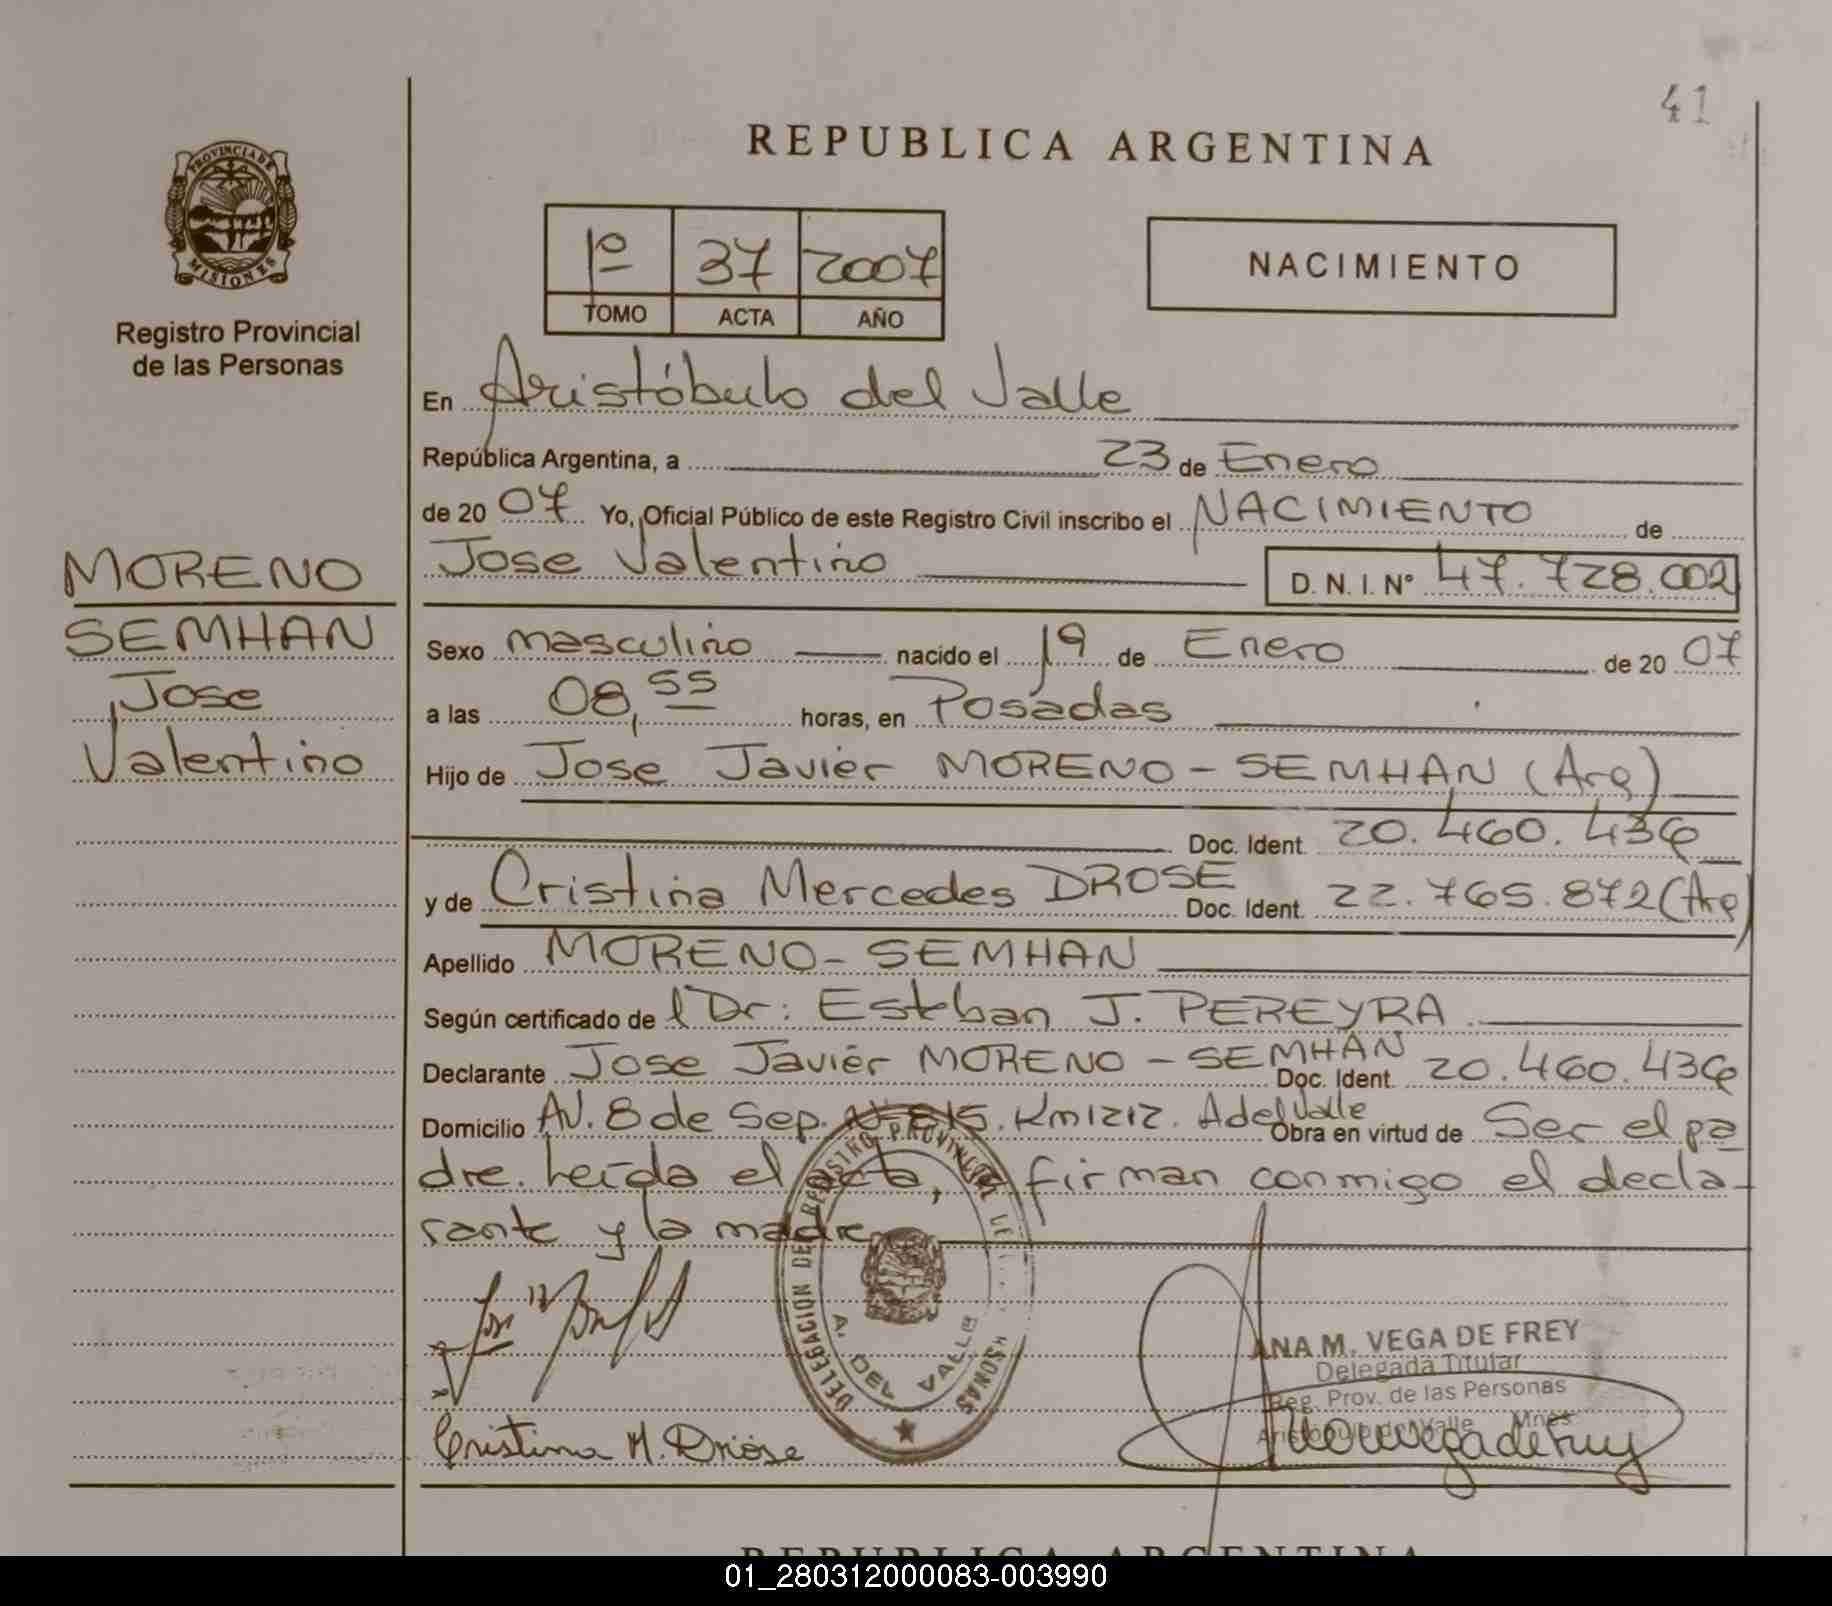 41
REPUBLICA ARGENTINA
PROVINCIA DE
MISIONES
Registro Provincial
de las Personas
1º 37 2007
TOMO ACTA AÑO
NACIMIENTO
En Aristóbulo del Valle
República Argentina, a 23 de Enero
de 20 07 Yo, Oficial Público de este Registro Civil inscribo el NACIMIENTO de
Jose Valentino D. N. I. Nº 47.728.002
MORENO
SEMHAN
Jose
Valentino
Sexo masculino nacido el 19 de Enero de 20 07
a las 08,55 horas, en Posadas
Hijo de Jose Javier MORENO - SEMHAN (Arg)
Doc. Ident. 20.460.436
y de Cristina Mercedes DROSE Doc. Ident. 22.765.872 (Arg)
Apellido MORENO - SEMHAN
Según certificado del Dr: Esteban J. PEREYRA.
Declarante Jose Javier MORENO - SEMHAN Doc. Ident. 20.460.436
Domicilio AV. 8 de Sep. Nº 815. Km 1212. A del Valle Obra en virtud de Ser el pa
dre. Leída el acta, firman conmigo el decla-
rante y la madre
DELEGACION DEL REGISTRO PROVINCIAL DE
A. DEL VALLE
ANA M. VEGA DE FREY
Delegada Titular
Reg. Prov. de las Personas
Aristóbulo del Valle Mnes
Cristina M. Driose
REPUBLICA ARGENTINA
01_280312000083-003990